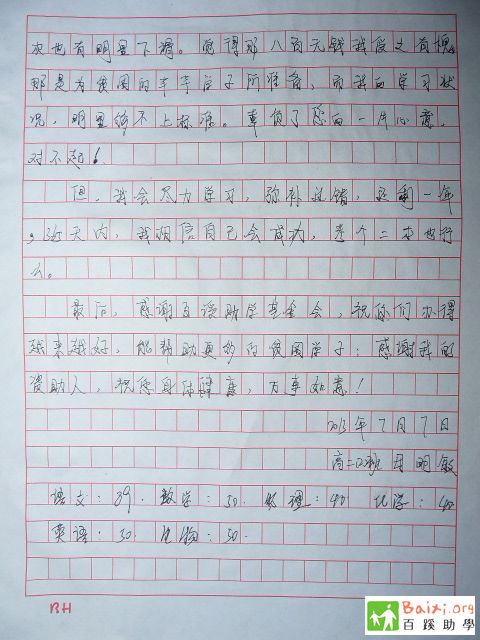 次也有明显下滑。觉得那八百元钱我受之有愧,
那是为贫困的莘莘学子所准备,而我的学习状
况,明显够不上标准。辜负了您的一片心意,
对不起!
但,我会尽力学习,弥补过错,还剩一年
,365天内,我相信自己会成功,考个二本也行
么。
最后,感谢百溪助学基金会,祝你们办得
越来越好,能帮助更多的贫困学子;感谢我的
资助人,祝您身体健康,万事如意!
2013年7月7日
高二 班 母明敏
语文:89. 数学:50. 物理:40 化学:40
英语:30. 生物:50.
BH
Baixi.org
百蹊助學